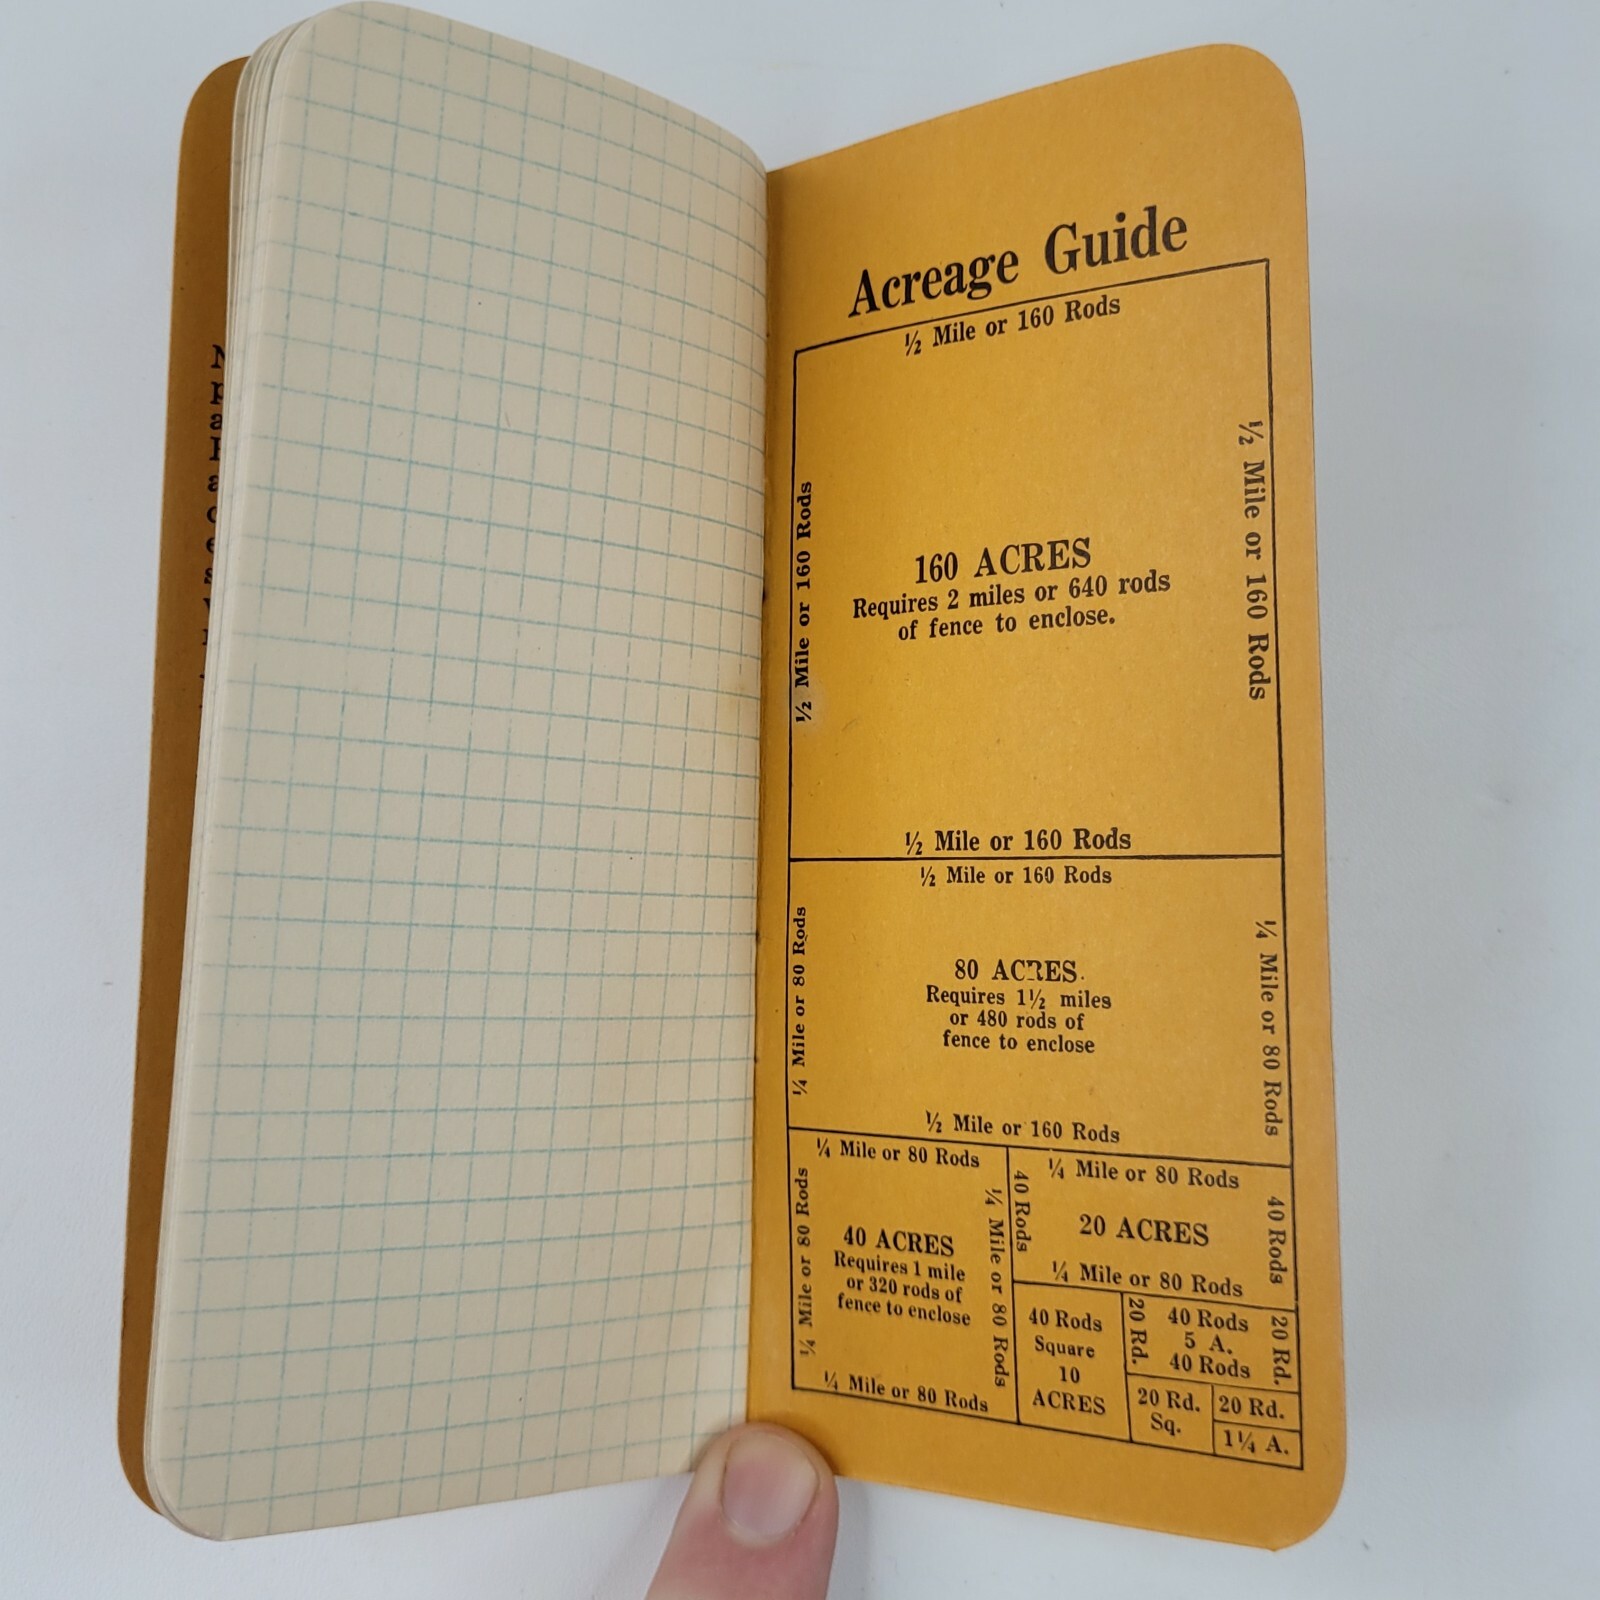 Acreage Guide
½ Mile or 160 Rods
½ Mile or 160 Rods
½ Mile or 160 Rods
160 ACRES
Requires 2 miles or 640 rods
of fence to enclose.
½ Mile or 160 Rods
½ Mile or 160 Rods
¼ Mile or 80 Rods
¼ Mile or 80 Rods
80 ACRES.
Requires 1½ miles
or 480 rods of
fence to enclose
½ Mile or 160 Rods
¼ Mile or 80 Rods
¼ Mile or 80 Rods
¼ Mile or 80 Rods
40 ACRES
Requires 1 mile
or 320 rods of
fence to enclose
¼ Mile or 80 Rods
¼ Mile or 80 Rods
40 Rods
40 Rods
20 ACRES
¼ Mile or 80 Rods
40 Rods
Square
10
ACRES
20 Rd.
40 Rods
5 A.
40 Rods
20 Rd.
20 Rd.
Sq.
20 Rd.
1¼ A.